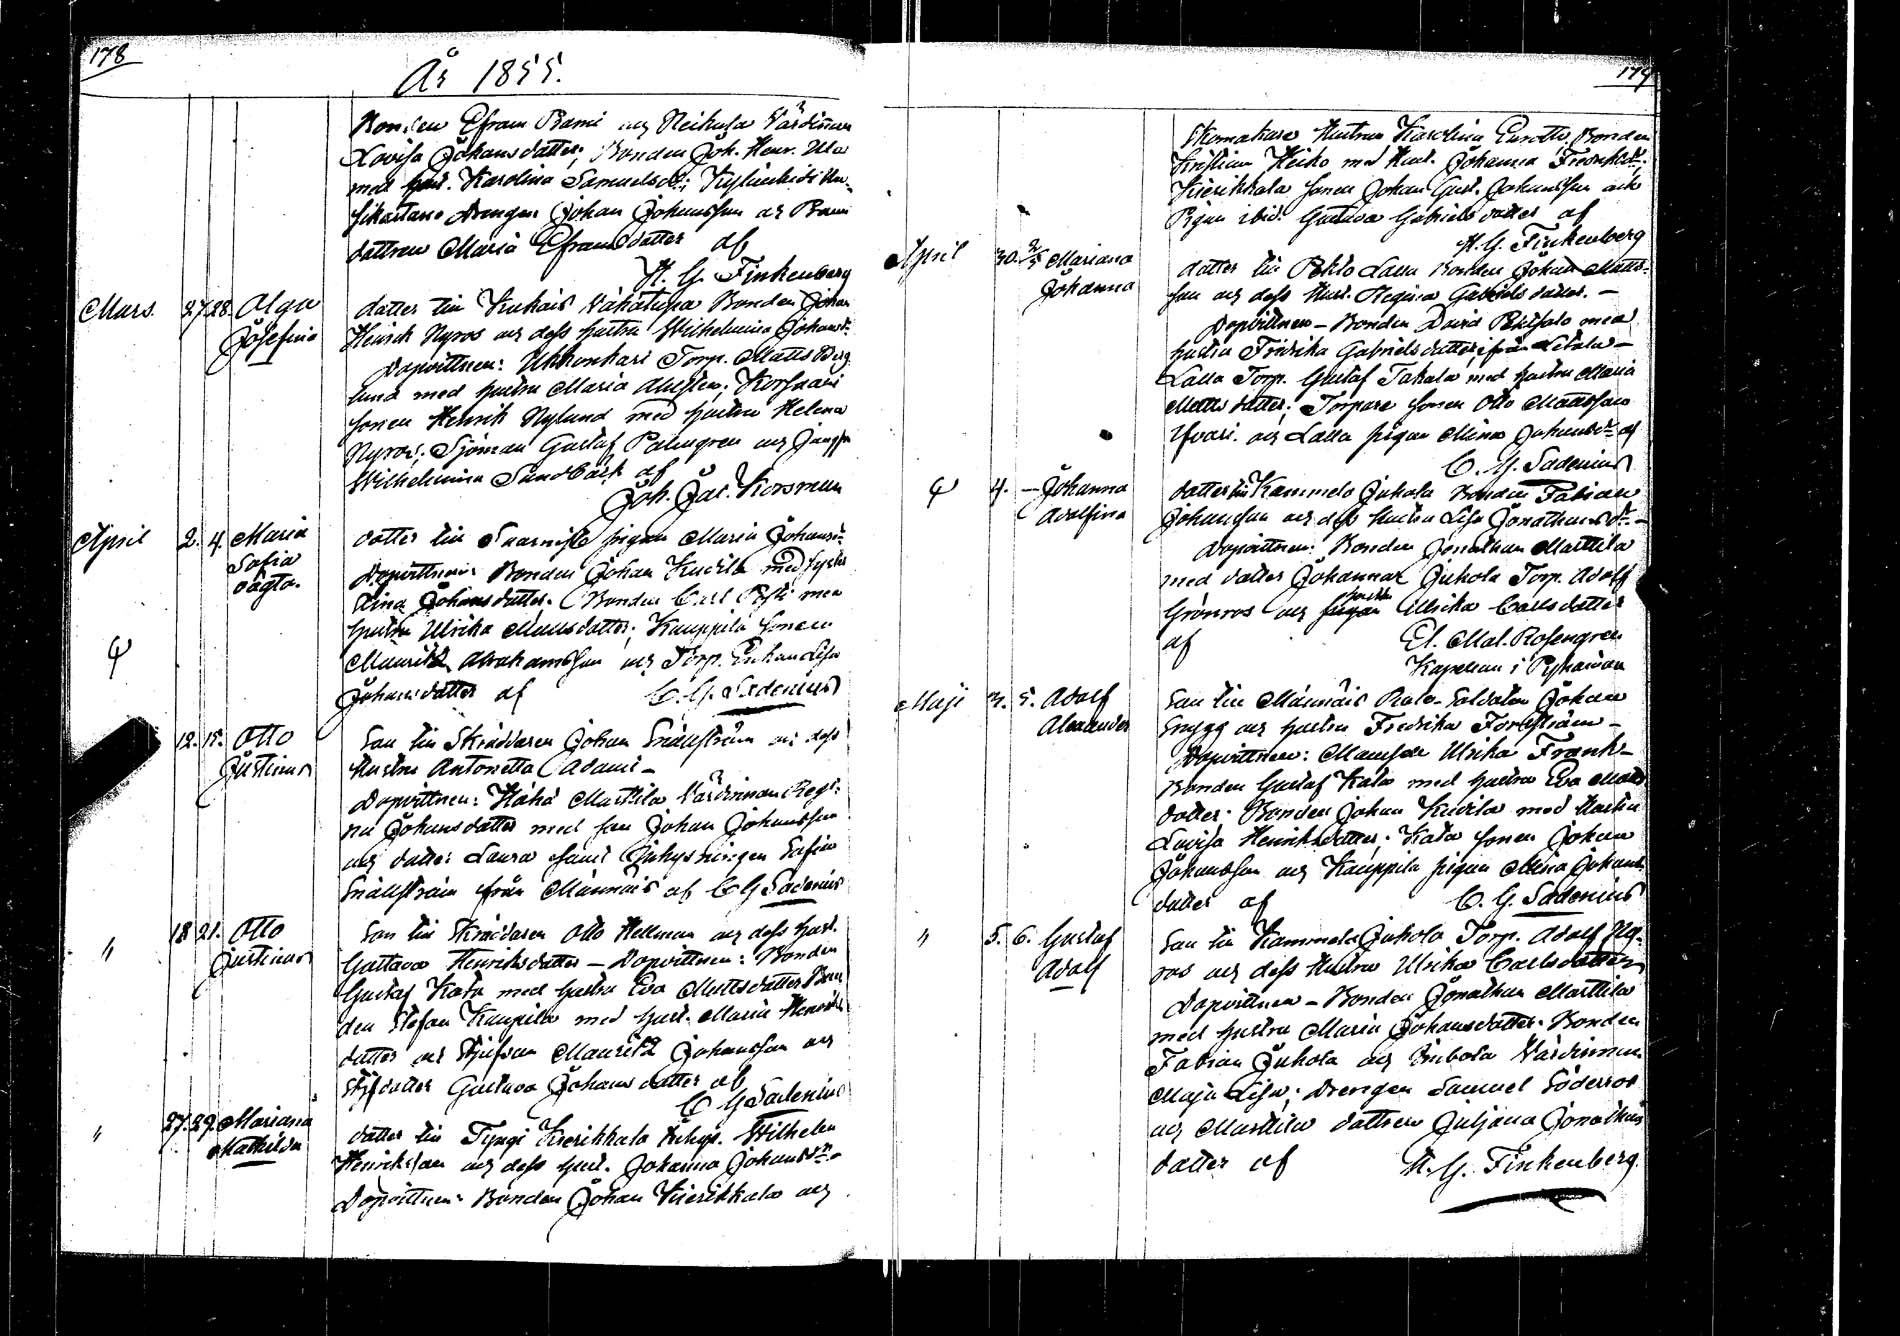 178
År 1855.
Bonden Efraim Rami och Neikula Värdinnan
Lovisa Johansdotter; Bonden Joh. Henr. Ulo
med hust. Karolina Samuelsd.;
Drengen Johan Johansson och Rami
dottren Maria Efraimsdotter af
H. G. Finkenberg
Mars. 27. 28. Olga
Josefina
dotter till Kukais Bonden Johan
Henrick Nyros och dess hustru Wilhelmina Johansd.
Dopvittnen: Ukkonkari Torp. Matts Berg
lund med hustru Maria
sonen Henrik Nylund med hustru Helena
Nyros; Sjöman Gustaf Palmgren och Jungfr
Wilhelmina Sundbäck af
Joh. Jac. Korsman
April 2. 4. Maria
Sofia
oägta.
dotter till pigan Maria Johansd.
Dopvittnen: Bonden Johan Kuivila med syster
Johansdotter. Bonden Carl med
hustru Ulrika Mattsdotter; Kauppila sonen
Mauritz Abrahamsson och Torp. Enkan Lisa
Johansdotter af C. G. Sadenius
12. 15. Otto
Justinus
Son till Skräddaren Johan Snällström och dess
Hustru Antonetta Adami -
Dopvittnen: Kåhä Marttila Värdinnan Regi-
na Johansdotter med son Johan Johansson
och dotter Laura samt Inhysningen Sofia
Snällström från Männäis af C G Sadenius
" 18 21. Otto
Justinus
Son till Skräddaren Otto Hellman och dess hust.
Gustava Henriksdotter - Dopvittnen: Bonden
Gustaf Kata med hustru Eva Mattsdotter Bon
den Stefan Kaupila med hust. Maria Henriks
dotter och Styfson Mauritz Johansson och
Styfdotter Gustava Johansdotter af
C G Sadenius
" 27. 29. Mariana
Mathilda
dotter till Tyngi Kierikkala Inhys. Wilhelm
Henriksson och dess hust. Johanna Johansdr.
Dopvittnen: Bonden Johan Kierikkala och
179
Skomakare Hustrun Karolina Bonden
Kristian Heiko med Hust. Johanna Fredriksdr.;
Kierikkala sonen Johan Gust. Johansson och
Pigan ibid. Gustava Gabrielsdotter af
H. G. Finkenberg
April 30. 2/5 Mariana
Johanna
dotter till Lassa Bonden Johan Matts-
son och dess Hust. Regina Gabrielsdotter. -
Dopvittnen - Bonden David med
hustru Fridrika Gabrielsdotter ifrån -
Lassa Torp. Gustaf Takala med hustru Maria
Mattsdotter; Torpare sonen Otto Mattsson
och Lassa pigan Mina Johansdr. af
C. G. Sadenius
4. - Johanna
Adolfina
dotter till Kammela Juhola Bonden Fabian
Johansson och dess hustru Lisa Jonathansdr. -
Dopvittnen: Bonden Jonathan Marttila
med dotter Johanna; Juhola Torp. Adolf
Grönros och pigan hustru Ulrika Carlsdotter
af El. Mal. Rosengren
Kapellan i Pyhämaa
Maji 3. 5. Adolf
Alexander
Son till Männäis Rote-Soldaten Johan
Snygg och hustru Fredrika Forsström -
Dopvittnen: Mamsell Ulrika Frank -
Bonden Gustaf Kata med hustru Eva Matts
dotter. Bonden Johan Kuivila med Hustru
Lovisa Henriksdotter; Kata sonen Johan
Johansson och Kauppila pigan Mina Johans
dotter af C. G. Sadenius
" 5. 6. Gustaf
Adolf
Son till Kammela Juhola Torp. Adolf
ros och dess Hustru Ulrika Carlsdotter
Dopvittnen - Bonden Jonathan Marttila
med hustru Maria Johansdotter. Bonden
Fabian Juhola och Värdinnan
Maja Lisa; Drengen Samuel Söderros
och Marttila dottren Juljana Jonathans
dotter af H. G. Finkenberg